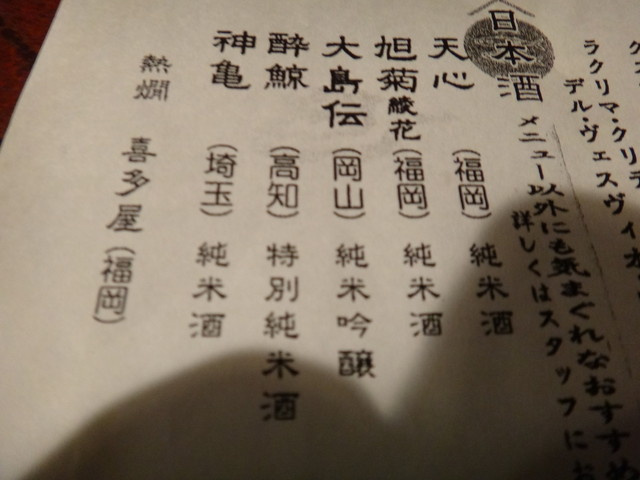 ラクリマ・クリ
デル・ヴェスヴィオ
日本酒
メニュー以外にも気まぐれなおすすめ
詳しくはスタッフにお
天心 (福岡) 純米酒
旭菊 綾花 (福岡) 純米酒
大島伝 (岡山) 純米吟醸
酔鯨 (高知) 特別純米酒
神亀 (埼玉) 純米酒
熱燗 喜多屋 (福岡)